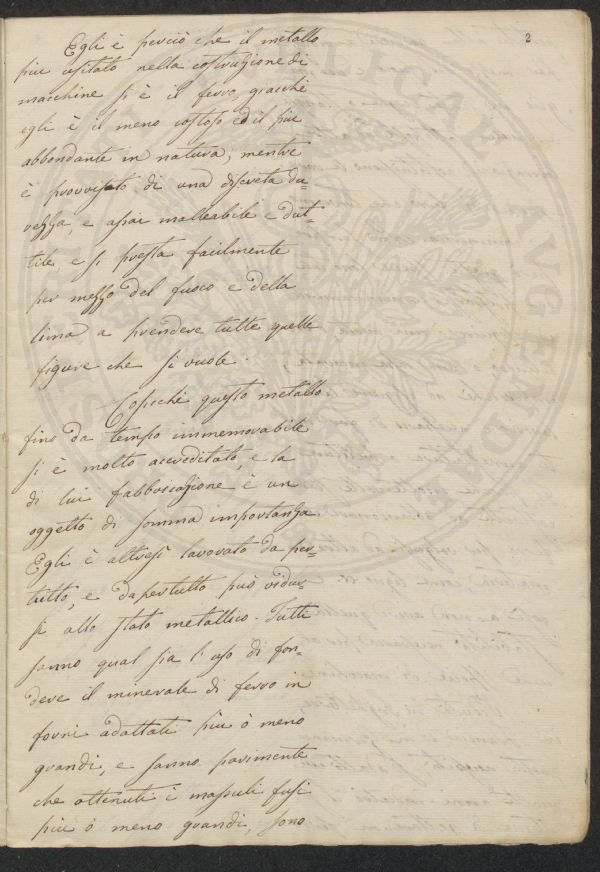 2
Egli è perciò che il metallo
piu usitato nella costruzione di
macchine si è il ferro giacchè
egli è il meno costoso ed il piu
abbondante in natura, mentre
è provvisto di una discreta du=
rezza, e assai malleabile e dut=
tile, e si presta facilmente
per mezzo del fuoco e della
lima a prendere tutte quelle
figure che si vuole.
Cosicchè questo metallo
fino da tempo immemorabile
si è molto accreditato, e la
di lui fabbricazione è un
oggetto di somma importanza
Egli è altresì lavorato da per=
tutto, e dapertutto può ridur=
si allo stato metallico. Tutti
sanno qual sia l'uso di fon=
dere il minerale di ferro in
forni adattati piu ò meno
grandi, e sanno parimente
che ottenuti i massuli fusi
piu ò meno grandi, sono